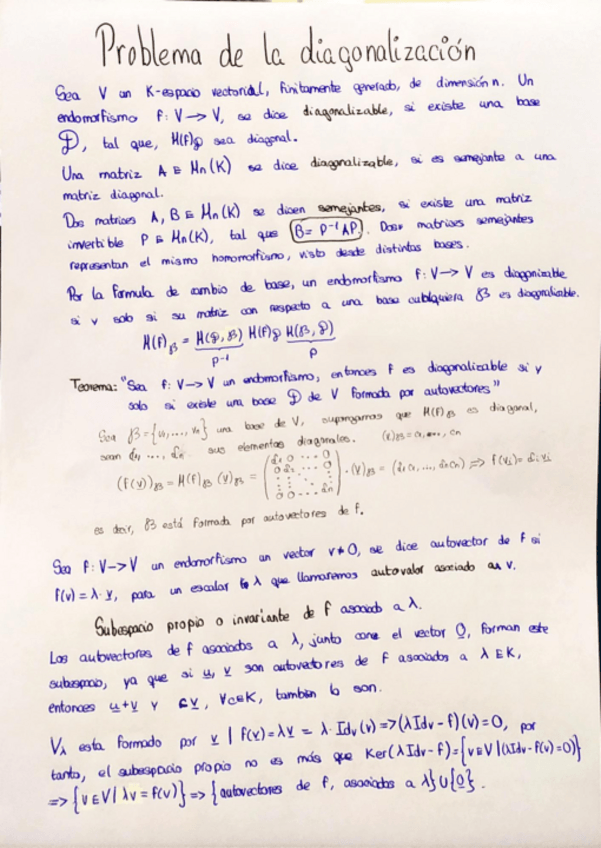 Problema de la diagonalización
Sea V un K-espacio vectorial, finitamente generado, de dimensión n. Un
endomorfismo f: V -> V, se dice diagonalizable, si existe una base
D, tal que, M(f)_D sea diagonal.
Una matriz A ∈ Mn(K) se dice diagonalizable, si es semejante a una
matriz diagonal.
Dos matrices A, B ∈ Mn(K) se dicen semejantes, si existe una matriz
invertible P ∈ Mn(K), tal que B = P⁻¹AP. Dos matrices semejantes
representan el mismo homomorfismo, visto desde distintas bases.
Por la fórmula de cambio de base, un endomorfismo f: V -> V es diagonizable
si y solo si su matriz con respecto a una base cualquiera B es diagonalizable.
M(f)_B = M(D, B) M(f)_D M(B, D)
P⁻¹ P
Teorema: "Sea f: V -> V un endomorfismo, entonces f es diagonalizable si y
solo si existe una base D de V formada por autovectores"
Sea B = {v₁, ..., vn} una base de V, supongamos que M(f)_B es diagonal,
sean d₁, ..., dn sus elementos diagonales. (v)_B = c₁, ..., cn
(f(v))_B = M(f)_B (v)_B = (d₁ 0 ... 0 / 0 d₂ ... 0 / ⋮ ⋮ ⋱ ⋮ / 0 0 ... dn) · (v)_B = (d₁c₁, ..., dncn) => f(vi) = di vi
es decir, B está formada por autovectores de f.
Sea f: V -> V un endomorfismo un vector v ≠ 0, se dice autovector de f si
f(v) = λ · v, para un escalar λ que llamaremos autovalor asociado a v.
Subespacio propio o invariante de f asociado a λ.
Los autovectores de f asociados a λ, junto con el vector 0, forman este
subespacio, ya que si u, v son autovectores de f asociados a λ ∈ K,
entonces u+v y cv, ∀c∈K, tambien lo son.
V_λ esta formado por v | f(v) = λv = λ · Idv(v) => (λIdv - f)(v) = 0, por
tanto, el subespacio propio no es más que Ker(λIdv - f) = {v∈V | (λIdv - f(v) = 0)}
=> {v∈V | λv = f(v)} => {autovectores de f, asociados a λ} ∪ {0}.